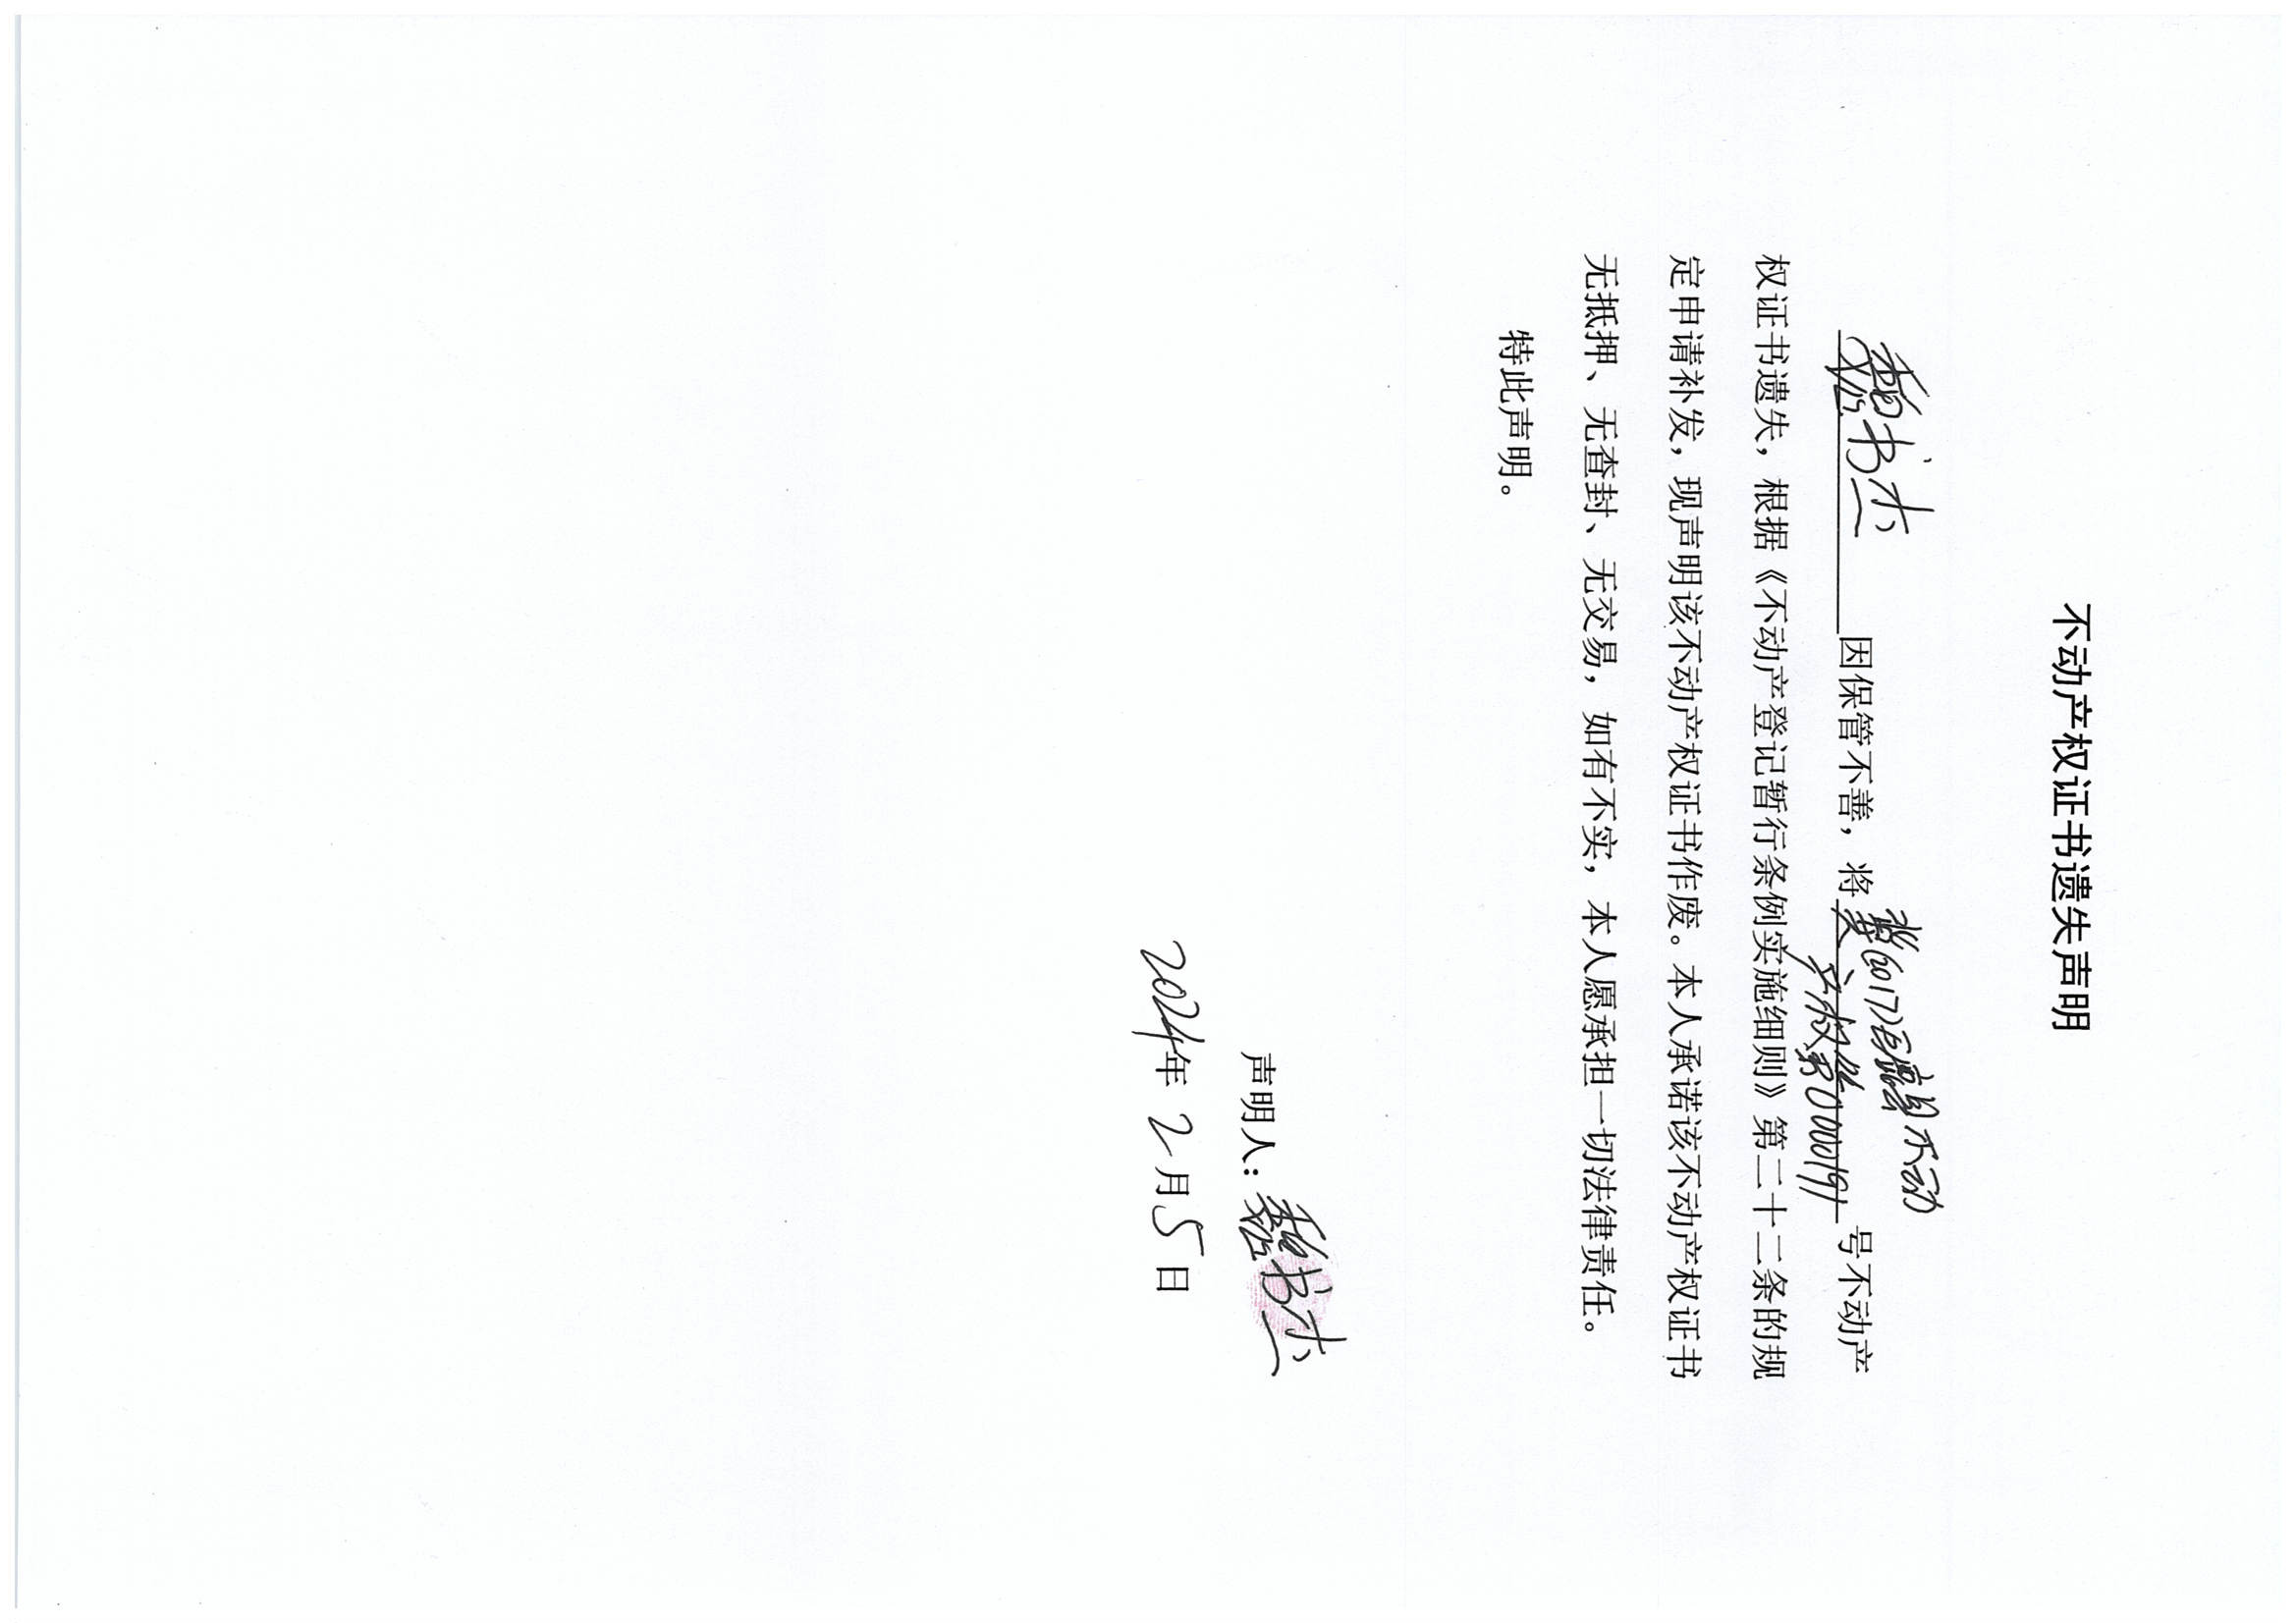 不动产权证书遗失声明
魏书杰因保管不善，将冀(2017)巨鹿县不动产权第0000191号不动产
权证书遗失，根据《不动产登记暂行条例实施细则》第二十二条的规
定申请补发，现声明该不动产权证书作废。本人承诺该不动产权证书
无抵押、无查封、无交易，如有不实，本人愿承担一切法律责任。
特此声明。
声明人：魏书杰
2024年2月5日